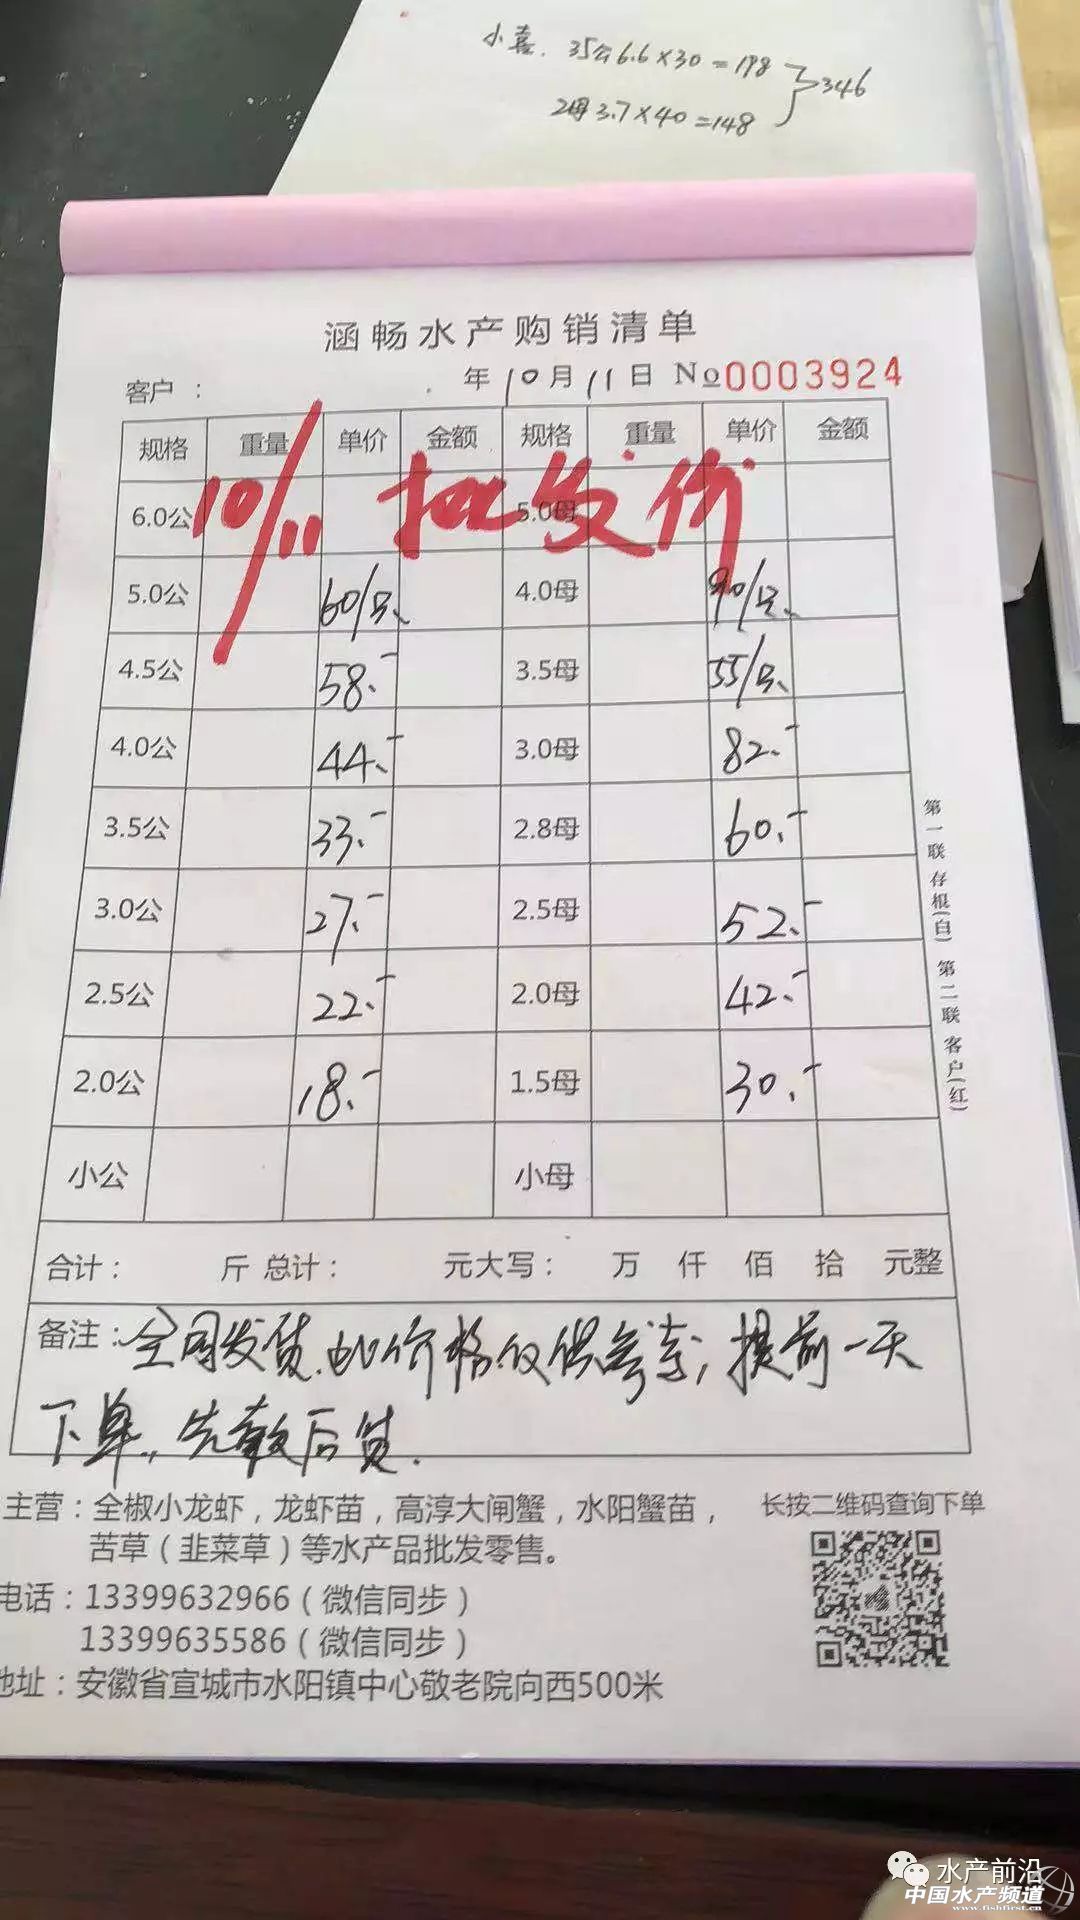 小喜. 35公6.6×30=198
346
2母3.7×40=148
涵畅水产购销清单
客户: 年10月11日 No 0003924
规格 重量 单价 金额 规格 重量 单价 金额
10/11 批发价
6.0公 5.0母
5.0公 60/只、 4.0母 90/只、
4.5公 58.- 3.5母 55/只、
4.0公 44.- 3.0母 82.-
3.5公 33.- 2.8母 60.-
3.0公 27.- 2.5母 52.-
2.5公 22.- 2.0母 42.-
2.0公 18.- 1.5母 30.-
小公 小母
合计: 斤 总计: 元大写: 万 仟 佰 拾 元整
备注: 全国发货, 价格仅供参考, 提前一天
下单, 先款后货.
第一联 存根(白) 第二联 客户(红)
主营:全椒小龙虾,龙虾苗,高淳大闸蟹,水阳蟹苗,
苦草(韭菜草)等水产品批发零售。
长按二维码查询下单
电话:13399632966(微信同步)
13399635586(微信同步)
地址:安徽省宣城市水阳镇中心敬老院向西500米
水产前沿
中国水产频道
www.fishfirst.cn